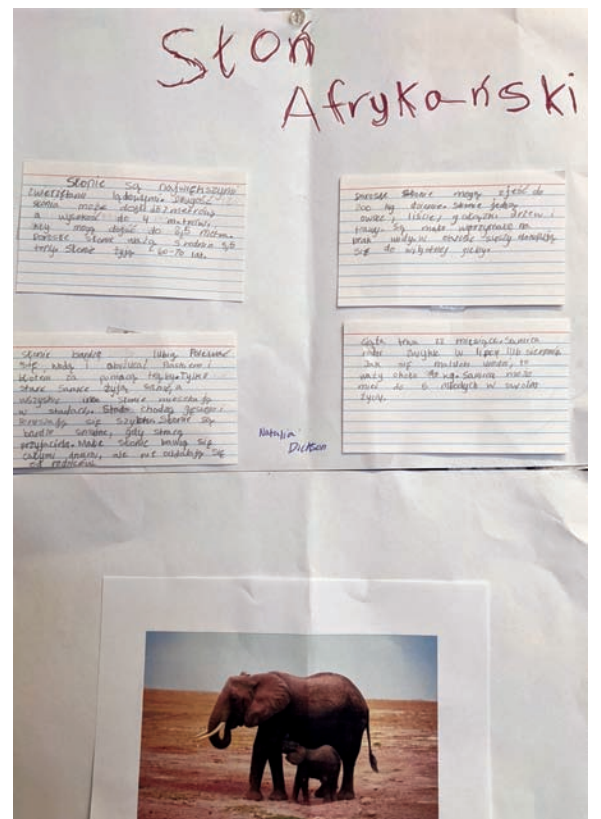 Słoń
Afrykański
Słonie są największymi
zwierzętami lądowymi. Długość
słonia może dojść do 7 metrów
a wysokość do 4 metrów.
kły mogą dojść do 3,5 metra.
Dorosłe słonie ważą średnio 5,5
tony. Słonie żyją 60-70 lat.
Dorosłe słonie mogą zjeść do
200 kg dziennie. Słonie jedzą
owoce, liście, gałązki drzew i
trawę. Są mało
się do
Słonie bardzo lubią polewać
się wodą i obsypać piaskiem i
błotem za pomocą trąby. Tylko
stare samce żyją same, a
wszystkie inne słonie mieszkają
w stadach. Stada chodzą gęsiego i
się szybko. Słonie są
bardzo smutne, gdy stracą
przyjaciela. Małe słonie bawią się
całymi dniami, ale nie oddalają się
od rodziców.
Ciąża trwa 22 miesiące. Samica
rodzi zwykle w lipcu lub sierpniu
Jak się malutki urodzi, to
waży około 90 kg. Samica może
mieć do 5 młodych w swoim
życiu.
Natalia
Dickson